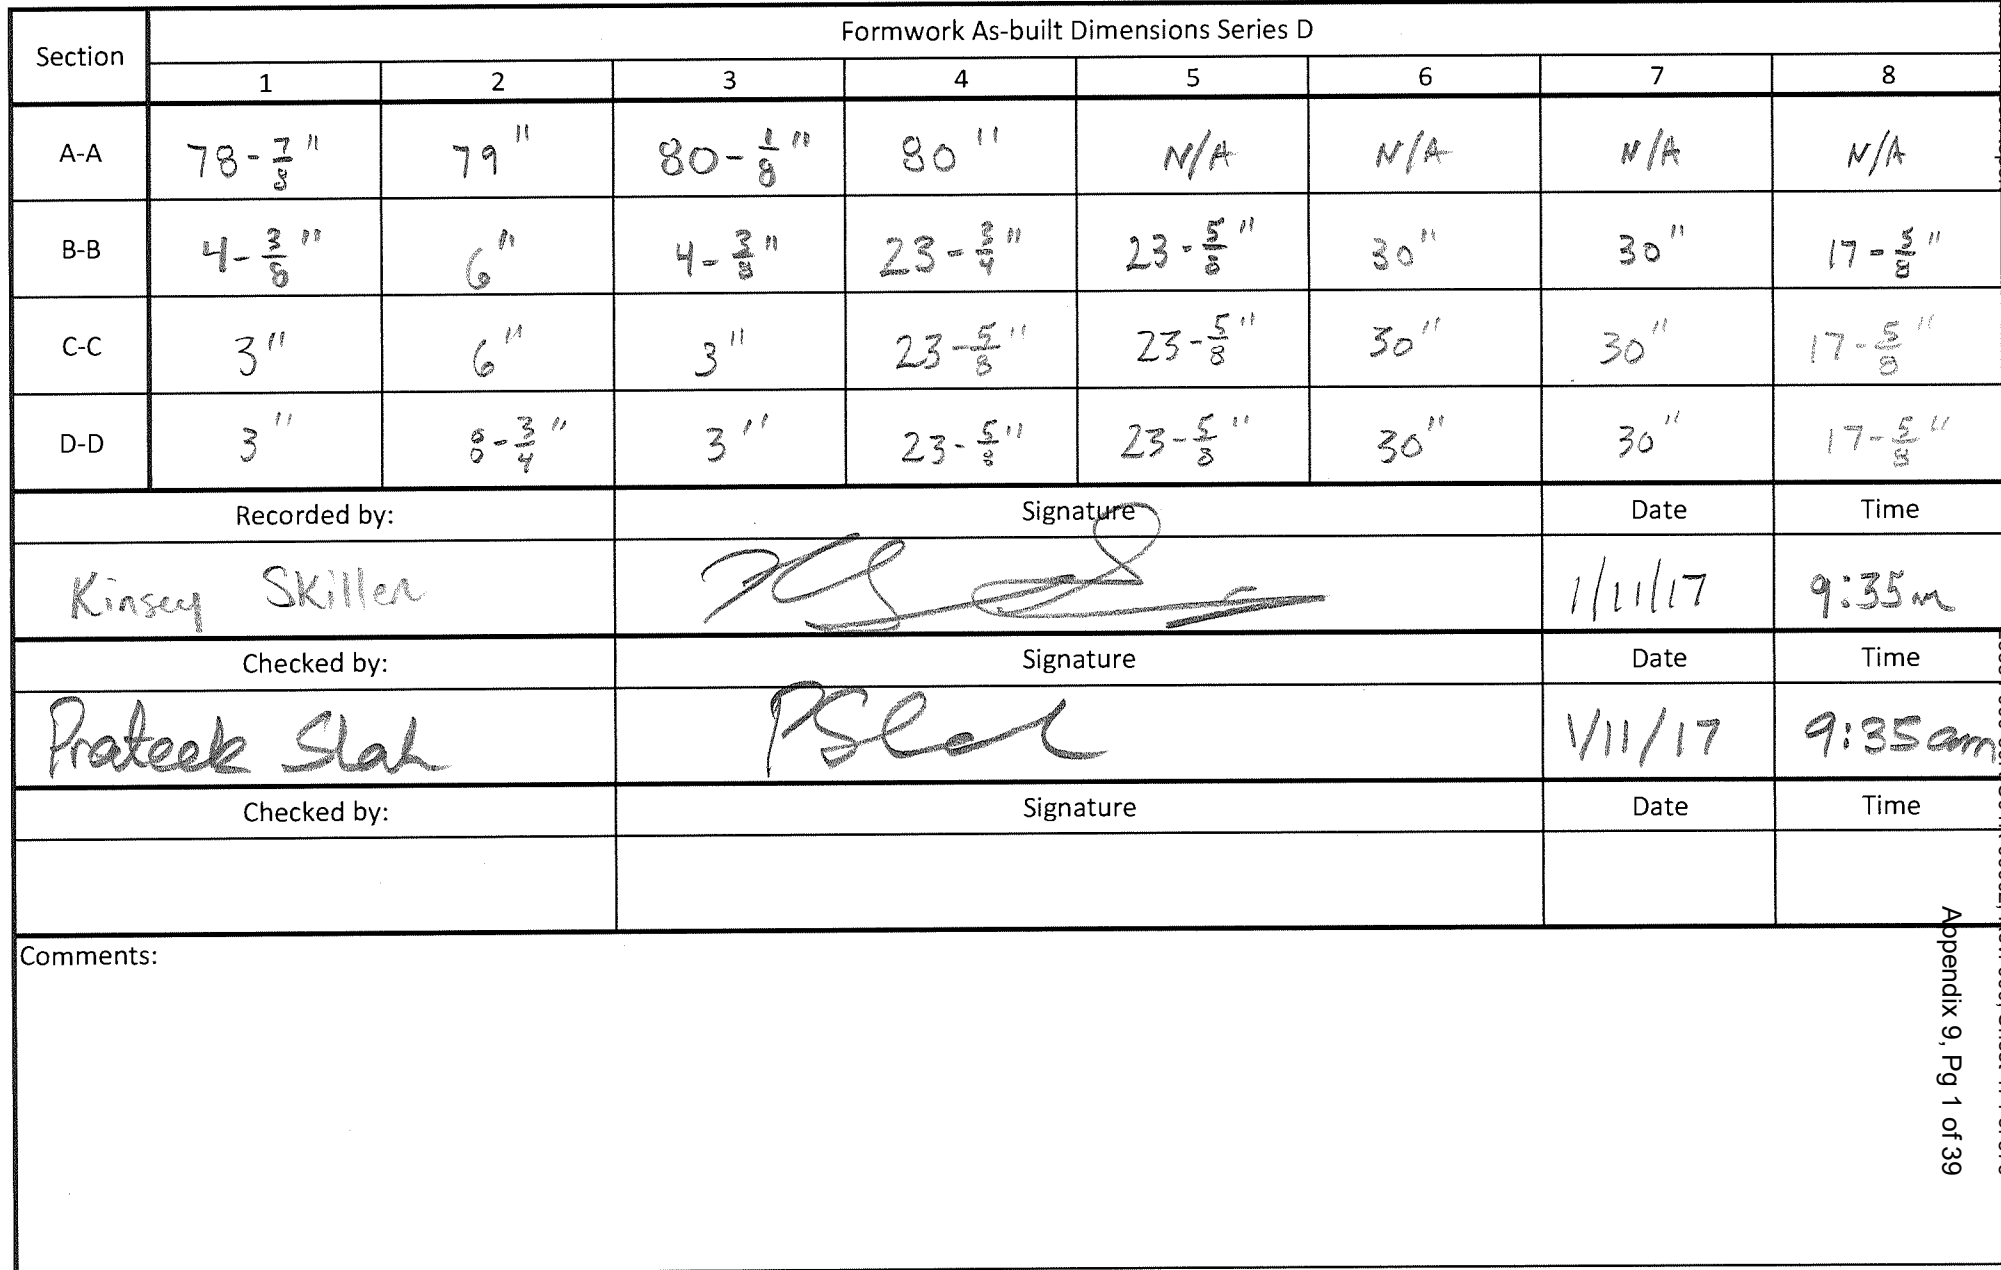 Formwork As-built Dimensions Series D
Section 1 2 3 4 5 6 7 8
A-A 78-7/8" 79" 80-1/8" 80" N/A N/A N/A N/A
B-B 4-3/8" 6" 4-3/8" 23-3/4" 23-5/8" 30" 30" 17-5/8"
C-C 3" 6" 3" 23-5/8" 23-5/8" 30" 30" 17-5/8"
D-D 3" 8-3/4" 3" 23-5/8" 23-5/8" 30" 30" 17-5/8"
Recorded by: Signature Date Time
Kinsey Skillen 1/11/17 9:35am
Checked by: Signature Date Time
Prateek Shah PShah 1/11/17 9:35am
Checked by: Signature Date Time
Comments:
Appendix 9, Pg 1 of 39